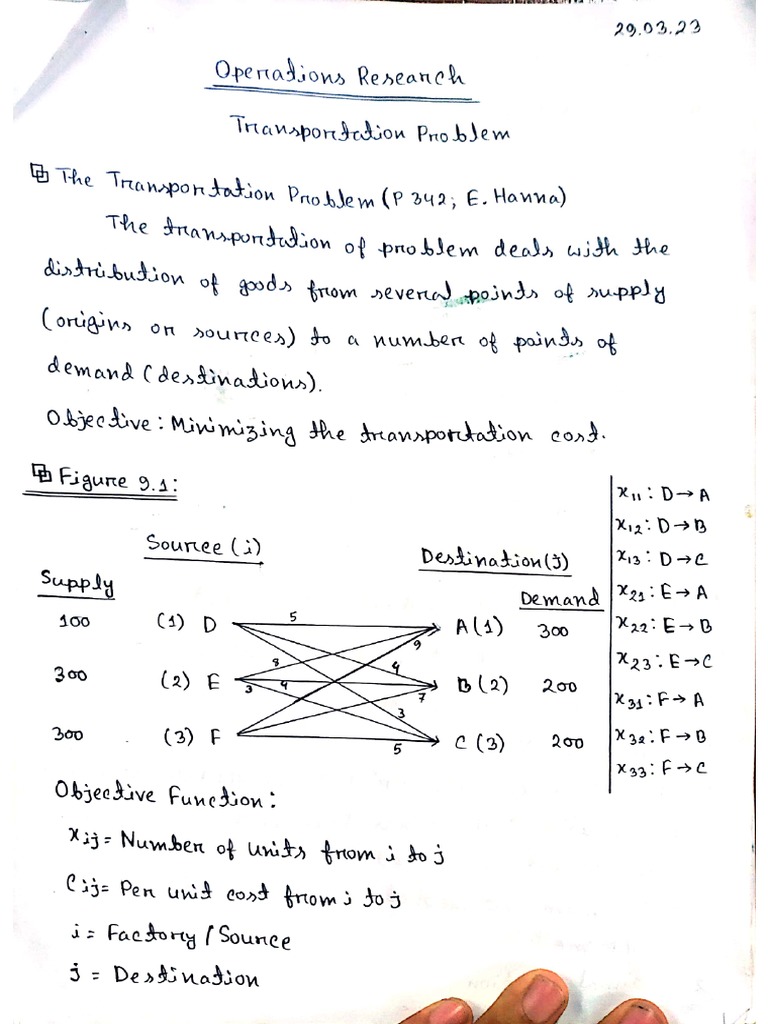 29.03.23
Operations Research
Transportation Problem
The Transportation Problem (P 342; E. Hanna)
The transportation of problem deals with the
distribution of goods from several points of supply
(origins or sources) to a number of points of
demand (destinations).
Objective: Minimizing the transportation cost.
Figure 9.1:
Source (i)
Destination (j)
Supply
Demand
100 (1) D 5 A (1) 300
9
8 4
300 (2) E 3 4 7 B (2) 200
3
300 (3) F 5 C (3) 200
x11: D→A
x12: D→B
x13: D→C
x21: E→A
x22: E→B
x23: E→C
x31: F→A
x32: F→B
x33: F→C
Objective Function:
xij = Number of units from i to j
Cij = Per unit cost from i to j
i = Factory / Source
j = Destination